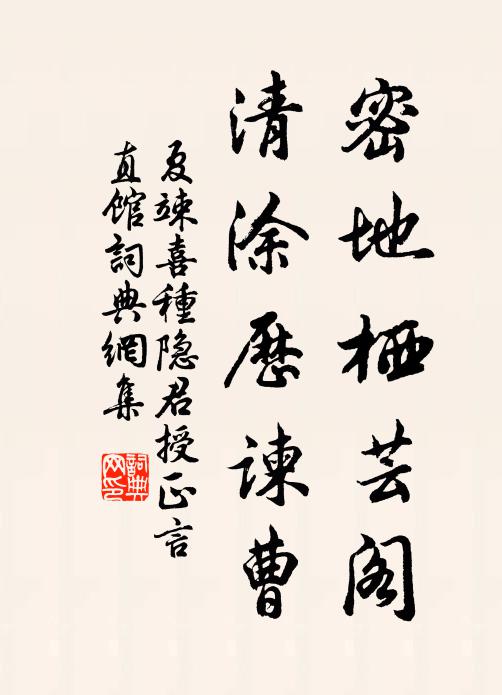 密地栖芸阁
清涂歷諫曹
夏竦喜種隐君授正言
直館詞典網集
詞典
网印